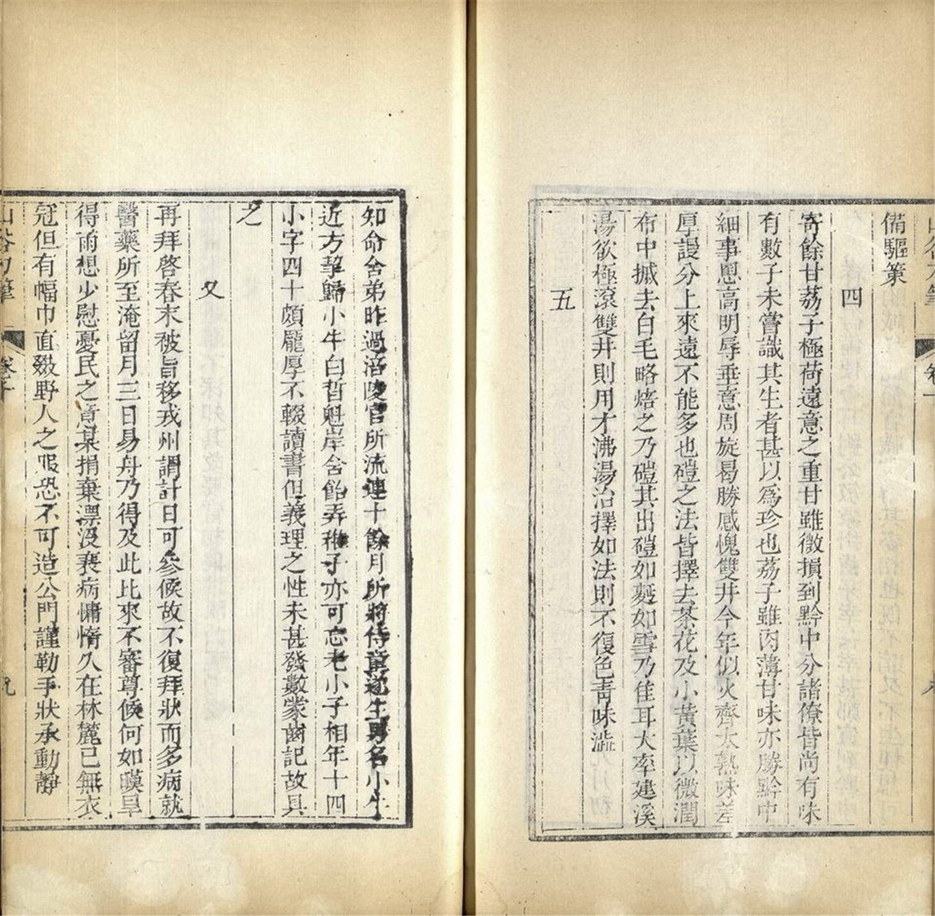 備驅策
四
寄餘甘荔子極荷遠意之重甘雖微損到黔中分諸僚皆尚有味
有數子未嘗識其生者甚以爲珍也荔子雖肉薄甘味亦勝黔中
細事恩高明辱垂意周旋曷勝感愧雙井今年似火齊太熟味差
厚謾分上來遠不能多也磑之法皆擇去茶花及小黃葉以微潤
布中摵去白毛略焙之乃磑其出磑如麪如雪乃佳耳大率建溪
湯欲極滾雙井則用才沸湯治擇如法則不復色靑味澁
五
知命舍弟昨過涪陵官所流連十餘月所將侍童逆生男名小牛
近方挈歸小牛白皙魁岸含飴弄稚子亦可忘老小子相年十四
小字四十頗龎厚不輟讀書但義理之性未甚發數蒙齒記故具
之
又
再拜啓春末被旨移戎州謂計日可參候故不復拜狀而多病就
醫藥所至淹留月三日易舟乃得及此比來不審尊候何如暵旱
得雨想少慰憂民之意某捐棄漂沒衰病慵惰久在林麓已無衣
冠但有幅巾直裰野人之服恐不可造公門謹勒手狀承動靜